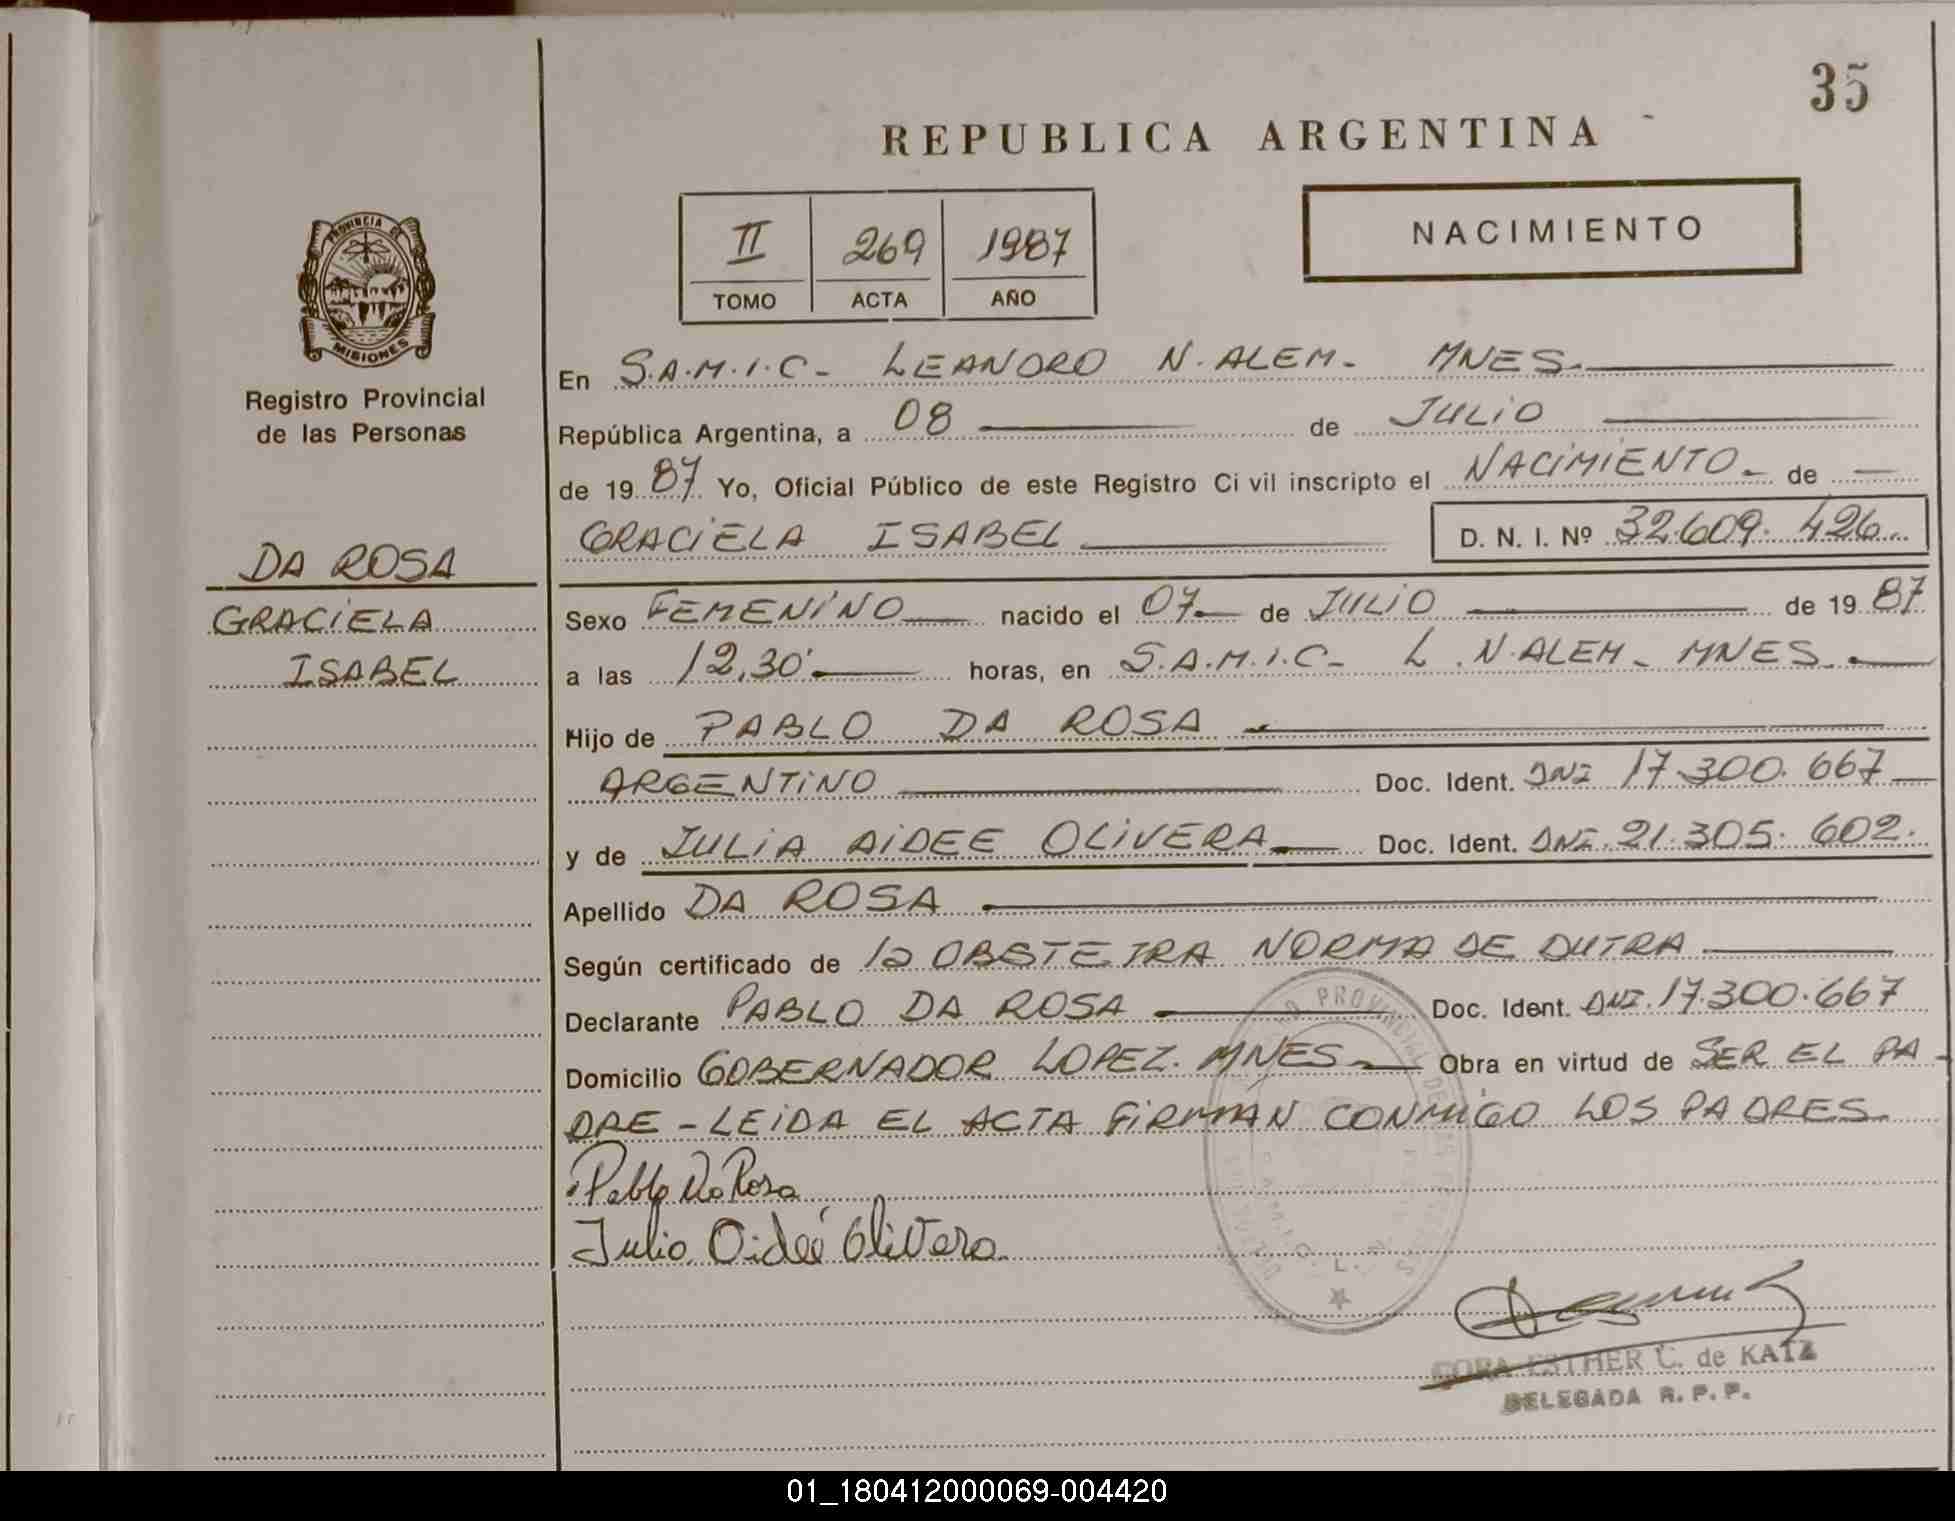 35
REPUBLICA ARGENTINA
II 269 1987
TOMO ACTA AÑO
NACIMIENTO
PROVINCIA DE
MISIONES
Registro Provincial
de las Personas
DA ROSA
GRACIELA
ISABEL
En S.A.M.I.C- LEANDRO N. ALEM- MNES.
República Argentina, a 08 de JULIO
de 19 87 Yo, Oficial Público de este Registro Ci vil inscripto el NACIMIENTO- de —
GRACIELA ISABEL D. N. I. Nº 32.609.426
Sexo FEMENINO nacido el 07 de JULIO de 19 87
a las 12,30' horas, en S.A.M.I.C- L. N. ALEM- MNES.
Hijo de PABLO DA ROSA
ARGENTINO Doc. Ident. DNI 17.300.667
y de JULIA AIDEE OLIVERA Doc. Ident. DNI. 21.305.602.
Apellido DA ROSA
Según certificado de la OBSTETRA NORMA DE DUTRA
Declarante PABLO DA ROSA Doc. Ident. DNI. 17.300.667
Domicilio GOBERNADOR LOPEZ. MNES- Obra en virtud de SER EL PA-
DRE - LEIDA EL ACTA FIRMAN CONMIGO LOS PADRES.
Pablo Da Rosa
Julia Aideé Olivera
PROVINCIAL DE LAS
S.A.M.I.C. L. N.
CORA ESTHER C. de KATZ
DELEGADA R. P. P.
01_180412000069-004420